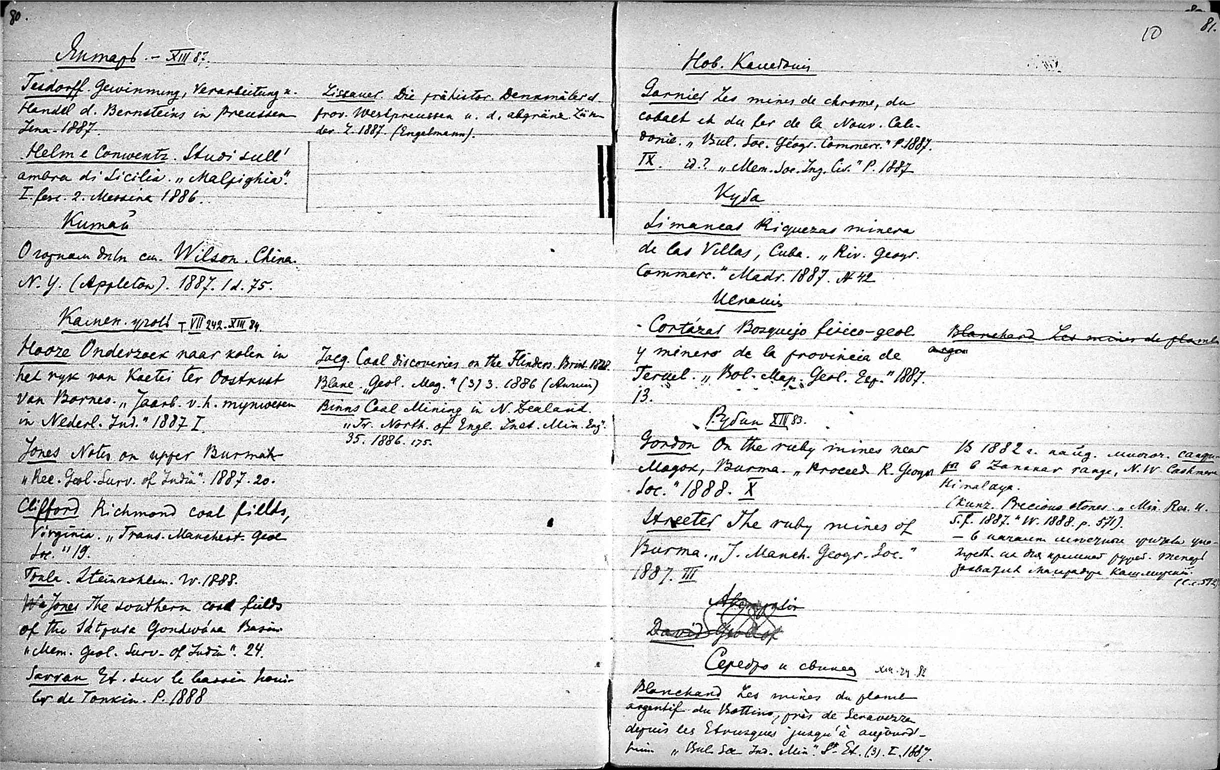 80
Янтарь. – XIII 85.
Tesdorff Gewinnung, Verarbeitung u.
Handel d. Bernsteins in Preussen
Jena. 1887.
Helm e Conwentz. Studi sull'
ambra di Sicilia. „Malpighia".
I. fasc. 2. Messina 1886.
Lissauer. Die prähistor. Denkmäler d.
prov. Westpreussen u. d. angränz.
L. 1887. (Engelmann).
Китай
Wilson. China.
N. Y. (Appleton). 1887. 1 d. 75.
Камен. уголь – VII 242. XIII 84
Hooze Onderzoek naar kolen in
het ryk van Koetei ter Oostkust
van Borneo. „Jaarb. v. h. mynwesen
in Nederl. Ind." 1887 I.
Jones Notes on upper Burmah
„Rec. Geol. Surv. of India". 1887. 20.
Clifford Richmond coal fields,
Virginia. „Trans. Manchest. Geol
Soc." 19.
Toula. Steinkohlen. W. 1888.
Jones The southern coal fields
of the Sátpura Gondwána Basin
„Mem. geol. Surv. of India". 24.
Sarran Et. sur le bassin houil
ler de Tonkin. P. 1888
Jacq Coal discoveries on the Flinders. Brisb. 1888.
„Geol. Mag." (3) 3. 1886
Binns Coal Mining in N. Zealand.
„Tr. North. of Engl. Inst. Min. Eng.
35. 1886. 175.
10
81.
Нов. Каледония
Garnier Les mines de chrome, du
cobalt et du fer de la Nouv. Calé-
donie. „Bul. Soc. Géogr. Commerc." P. 1887.
IX. id.? „Mem. Soc. Ing. Civ." P. 1887
Куба
Limancas Riquezas minera
de las Villas, Cuba. „Riv. Geogr.
Commerc." Madr. 1887. № 42
Испания
Cortázar Bosquejo fisico-geol
y minero de la provincia de
Teruel. „Bol. Map. Geol. Esp." 1887.
13.
Blanchard Les mines de plomb
Рубин XIII 83.
Gordon On the ruby mines near
Mogok, Burma. „Proceed R. Geogr.
Soc." 1888. X
Streeter The ruby mines of
Burma. „J. Manch. Geogr. Soc."
1887. III
В 1882 г. найд.
в Zanskar range, N.W Cashmere
Himalaya.
(Kunz. Precious stones. „Min. Res. U.
S. f. 1887." W. 1888. p. 571).
David
Серебро и свинец XIII. 29. 82
Blanchard Les mines du plomb
argentif. du Bottino, près de Seravezza
depuis les Etrusques jusqu'à aujourd-
huin „Bul. Soc Ind. Min." St. Et. (3). I. 1887.